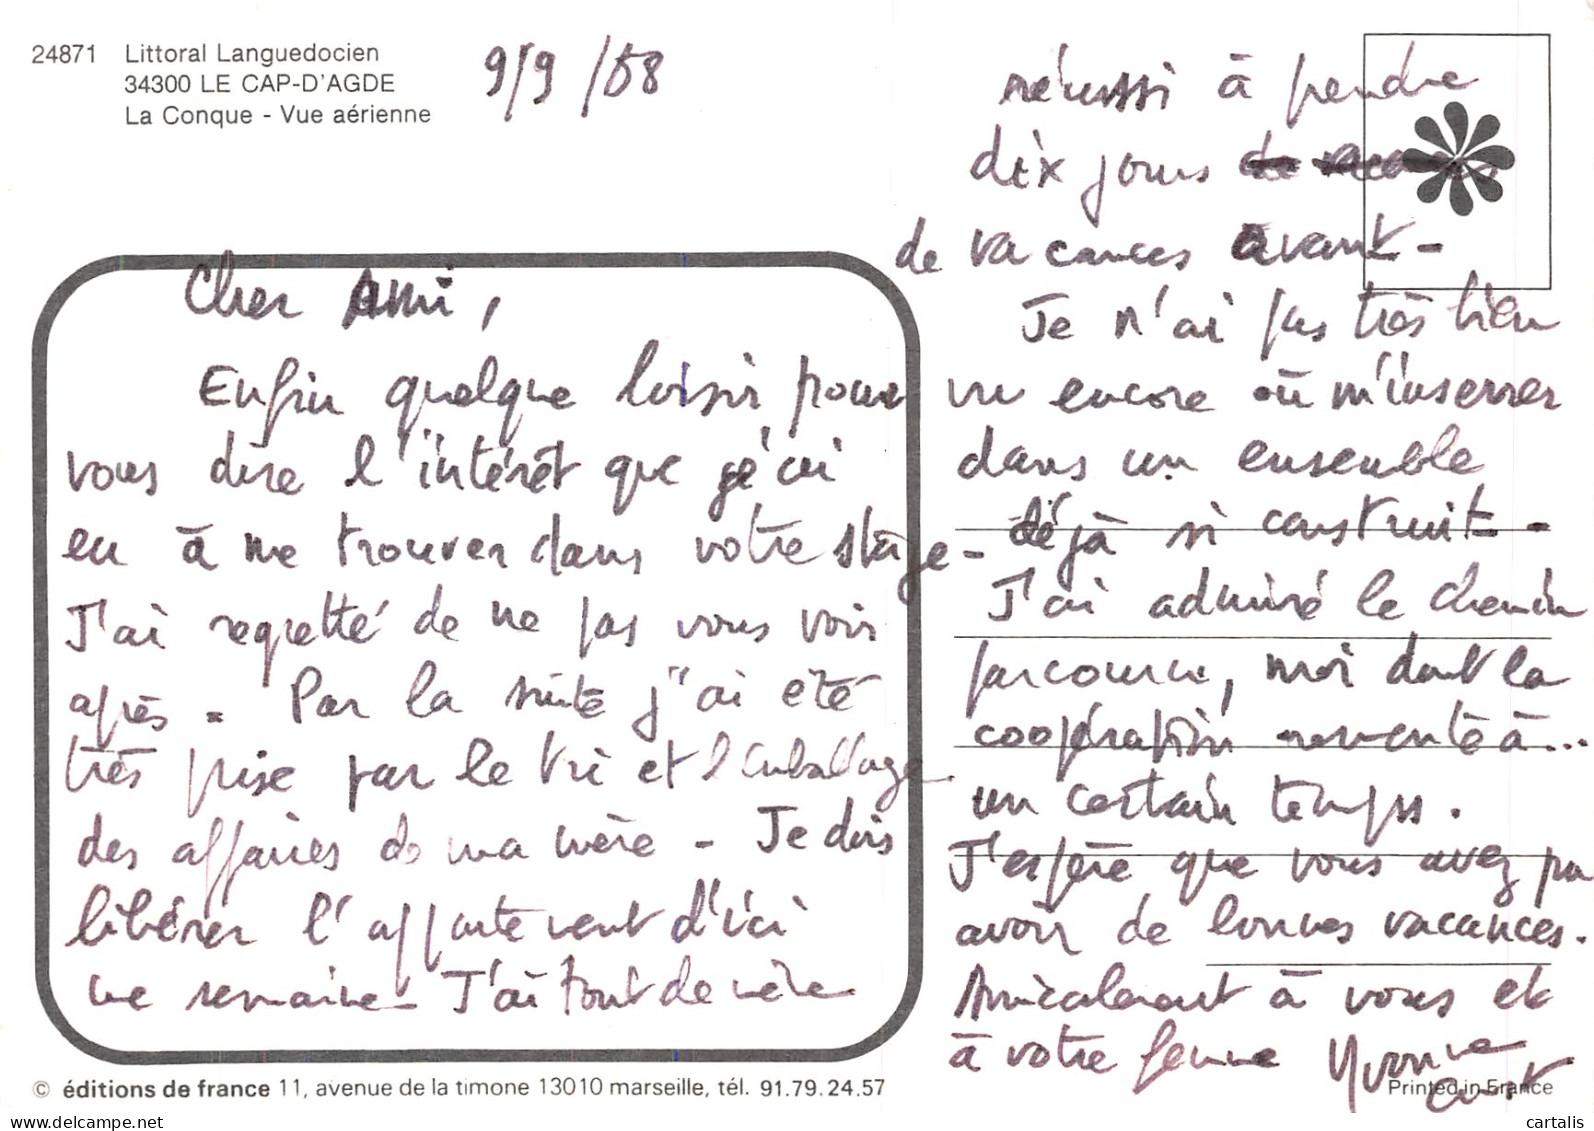 24871 Littoral Languedocien
34300 LE CAP-D'AGDE
La Conque - Vue aérienne
9/9/88
Cher Ami,
Enfin quelque loisir pour
vous dire l'intérêt que j'ai
eu à me trouver dans votre stage -
J'ai regretté de ne pas vous voir
après. Par la suite j'ai été
très prise par le tri et l'emballage
des affaires de ma mère - Je dois
libérer l'appartement d'ici
une semaine - J'ai tout de même
réussi à prendre
dix jours de vacances
de vacances avant -
Je n'ai pas très bien
vu encore où m'insérer
dans un ensemble
déjà si construit -
J'ai admiré le chemin
parcouru, moi dont la
coopération remonte à...
un certain temps.
J'espère que vous avez pu
avoir de bonnes vacances.
Amicalement à vous et
à votre femme Yvonne
© éditions de france 11, avenue de la timone 13010 marseille, tél. 91.79.24.57
Printed in France
delcampe.net
cartalis